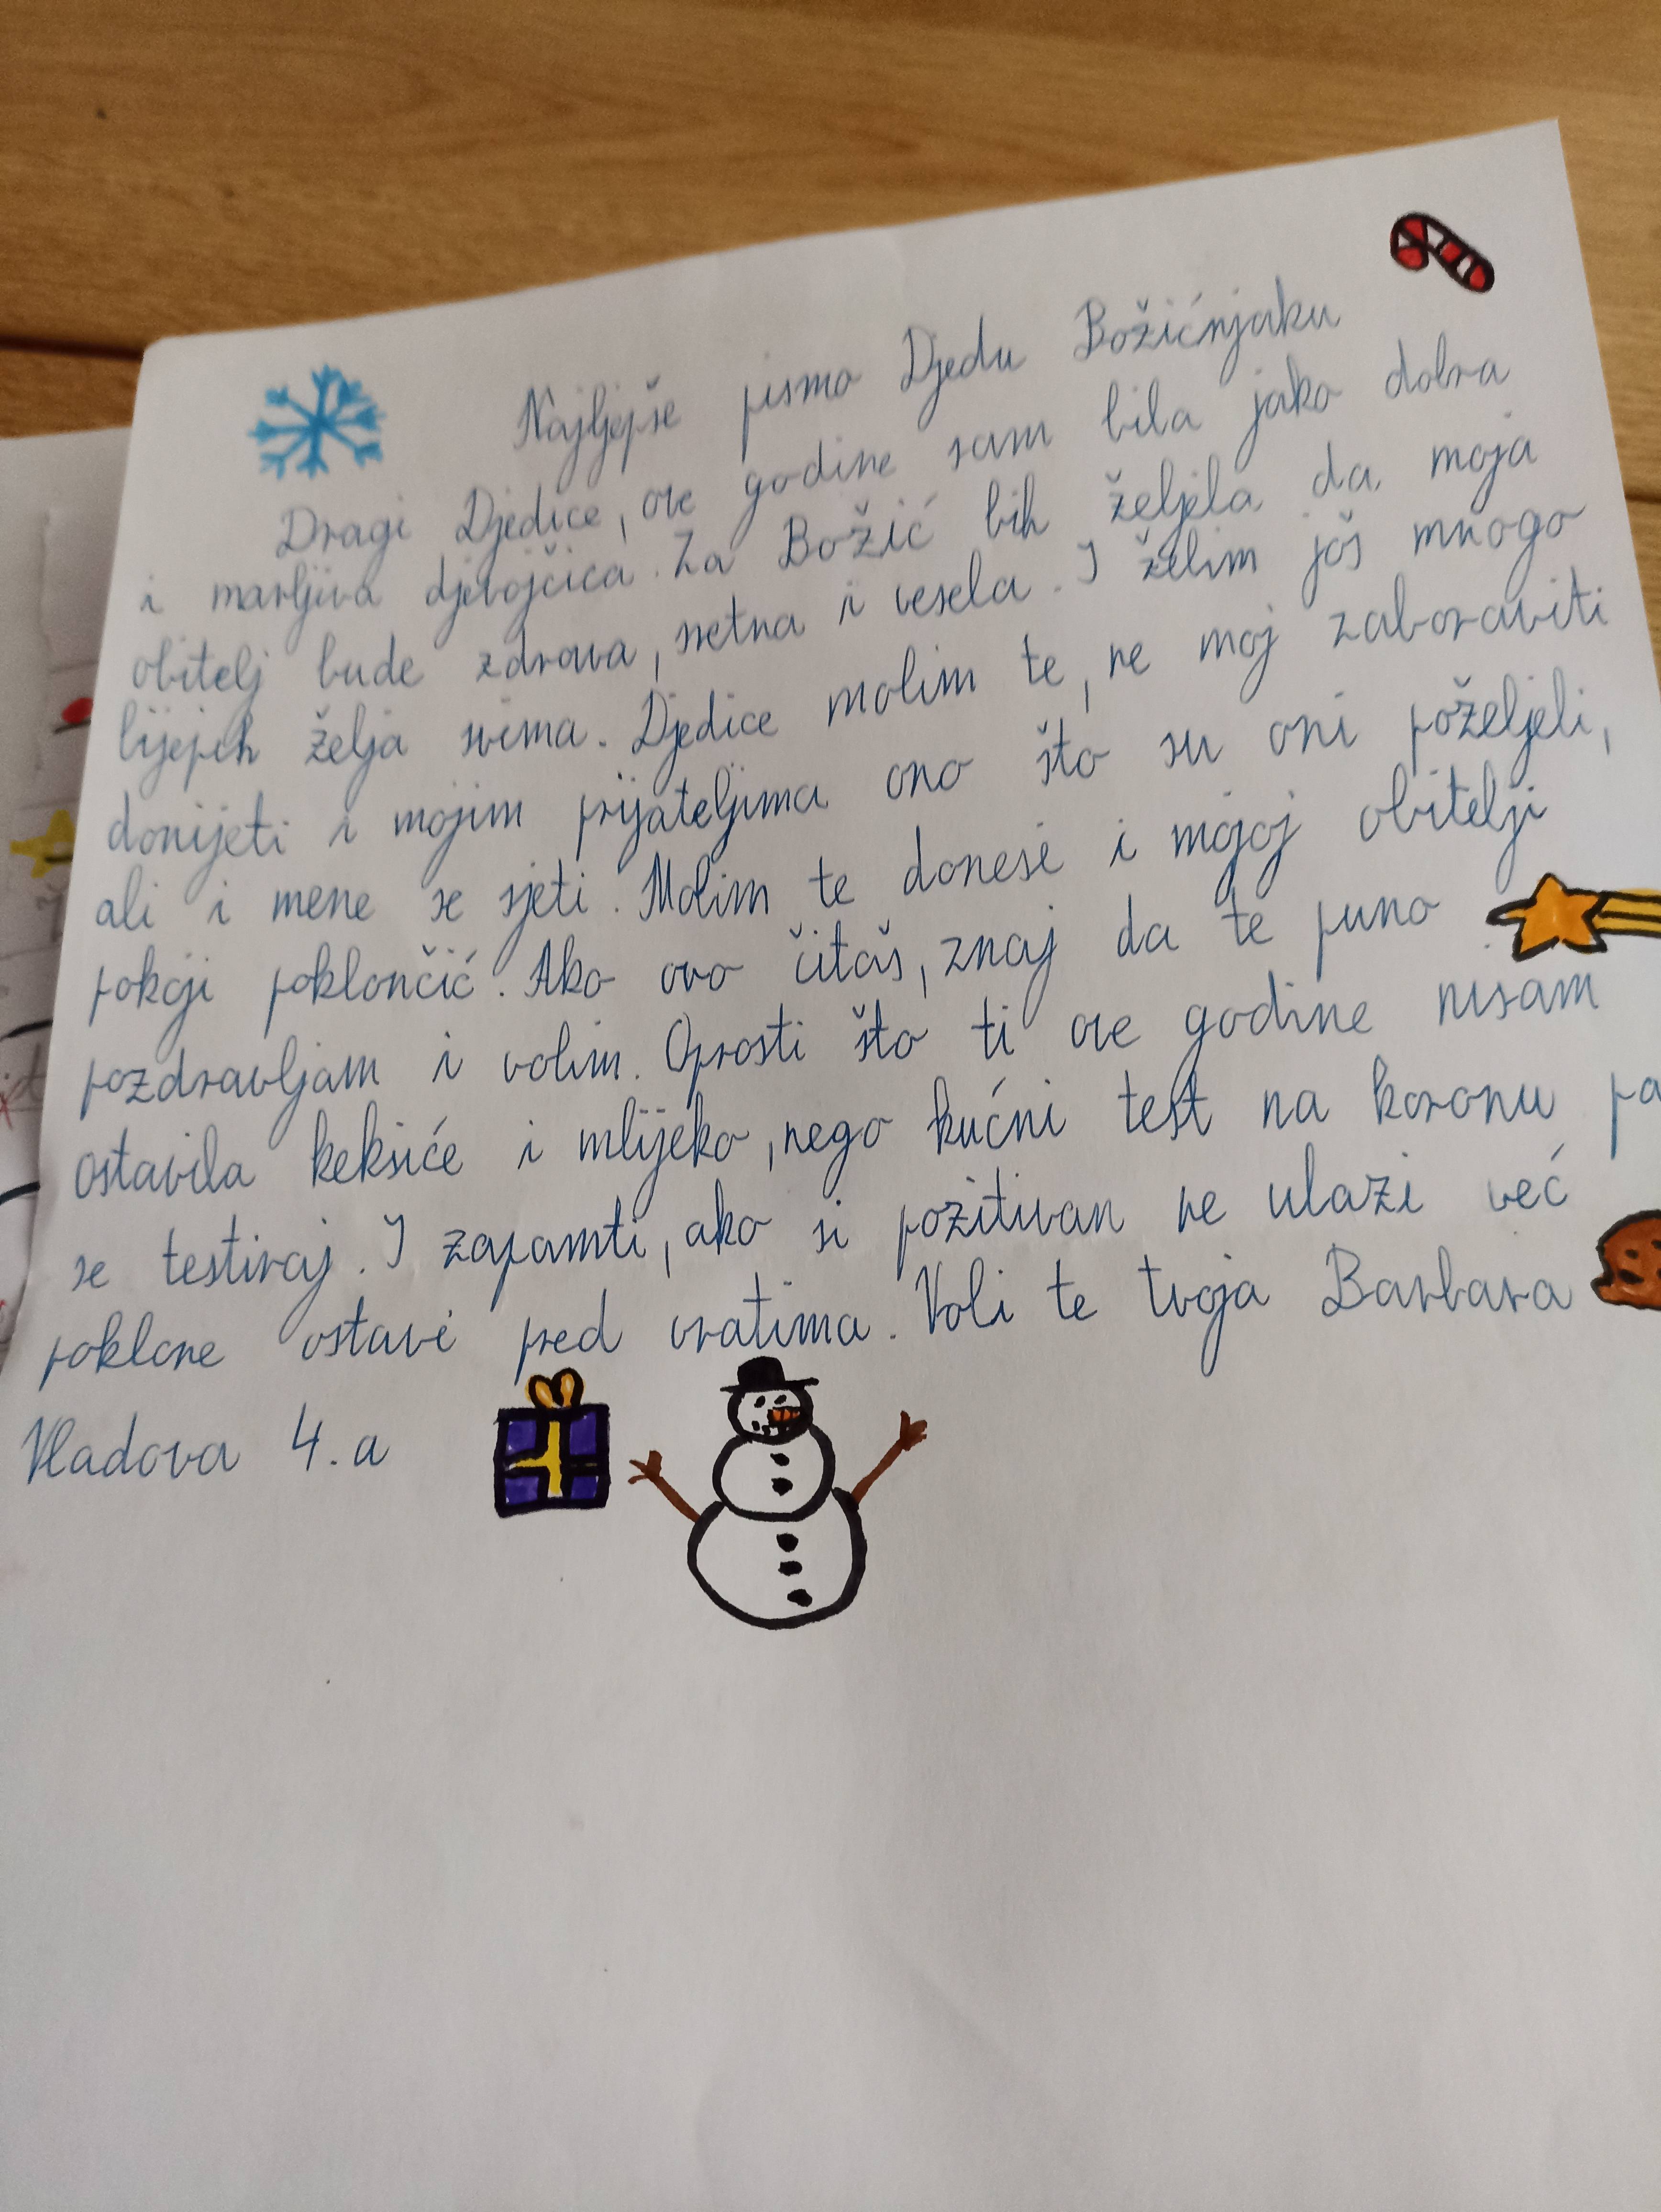 Najljepše pismo Djedu Božićnjaku
Dragi Djedice, ove godine sam bila jako dobra
i marljiva djevojčica. Za Božić bih željela da moja
obitelj bude zdrava, sretna i vesela. I želim još mnogo
lijepih želja svima. Djedice molim te, ne moj zaboraviti
donijeti i mojim prijateljima ono što su oni poželjeli,
ali i mene se sjeti. Molim te donesi i mojoj obitelji
pokoji poklončić. Ako ovo čitaš, znaj da te puno
pozdravljam i volim. Oprosti što ti ove godine nisam
ostavila keksiće i mlijeko, nego kućni test na koronu pa
se testiraj. I zapamti, ako si pozitivan ne ulazi već
poklone ostavi pred vratima. Voli te tvoja Barbara
Vladova 4.a